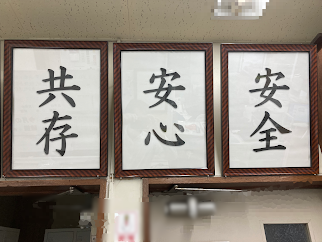 安全
安心
共存